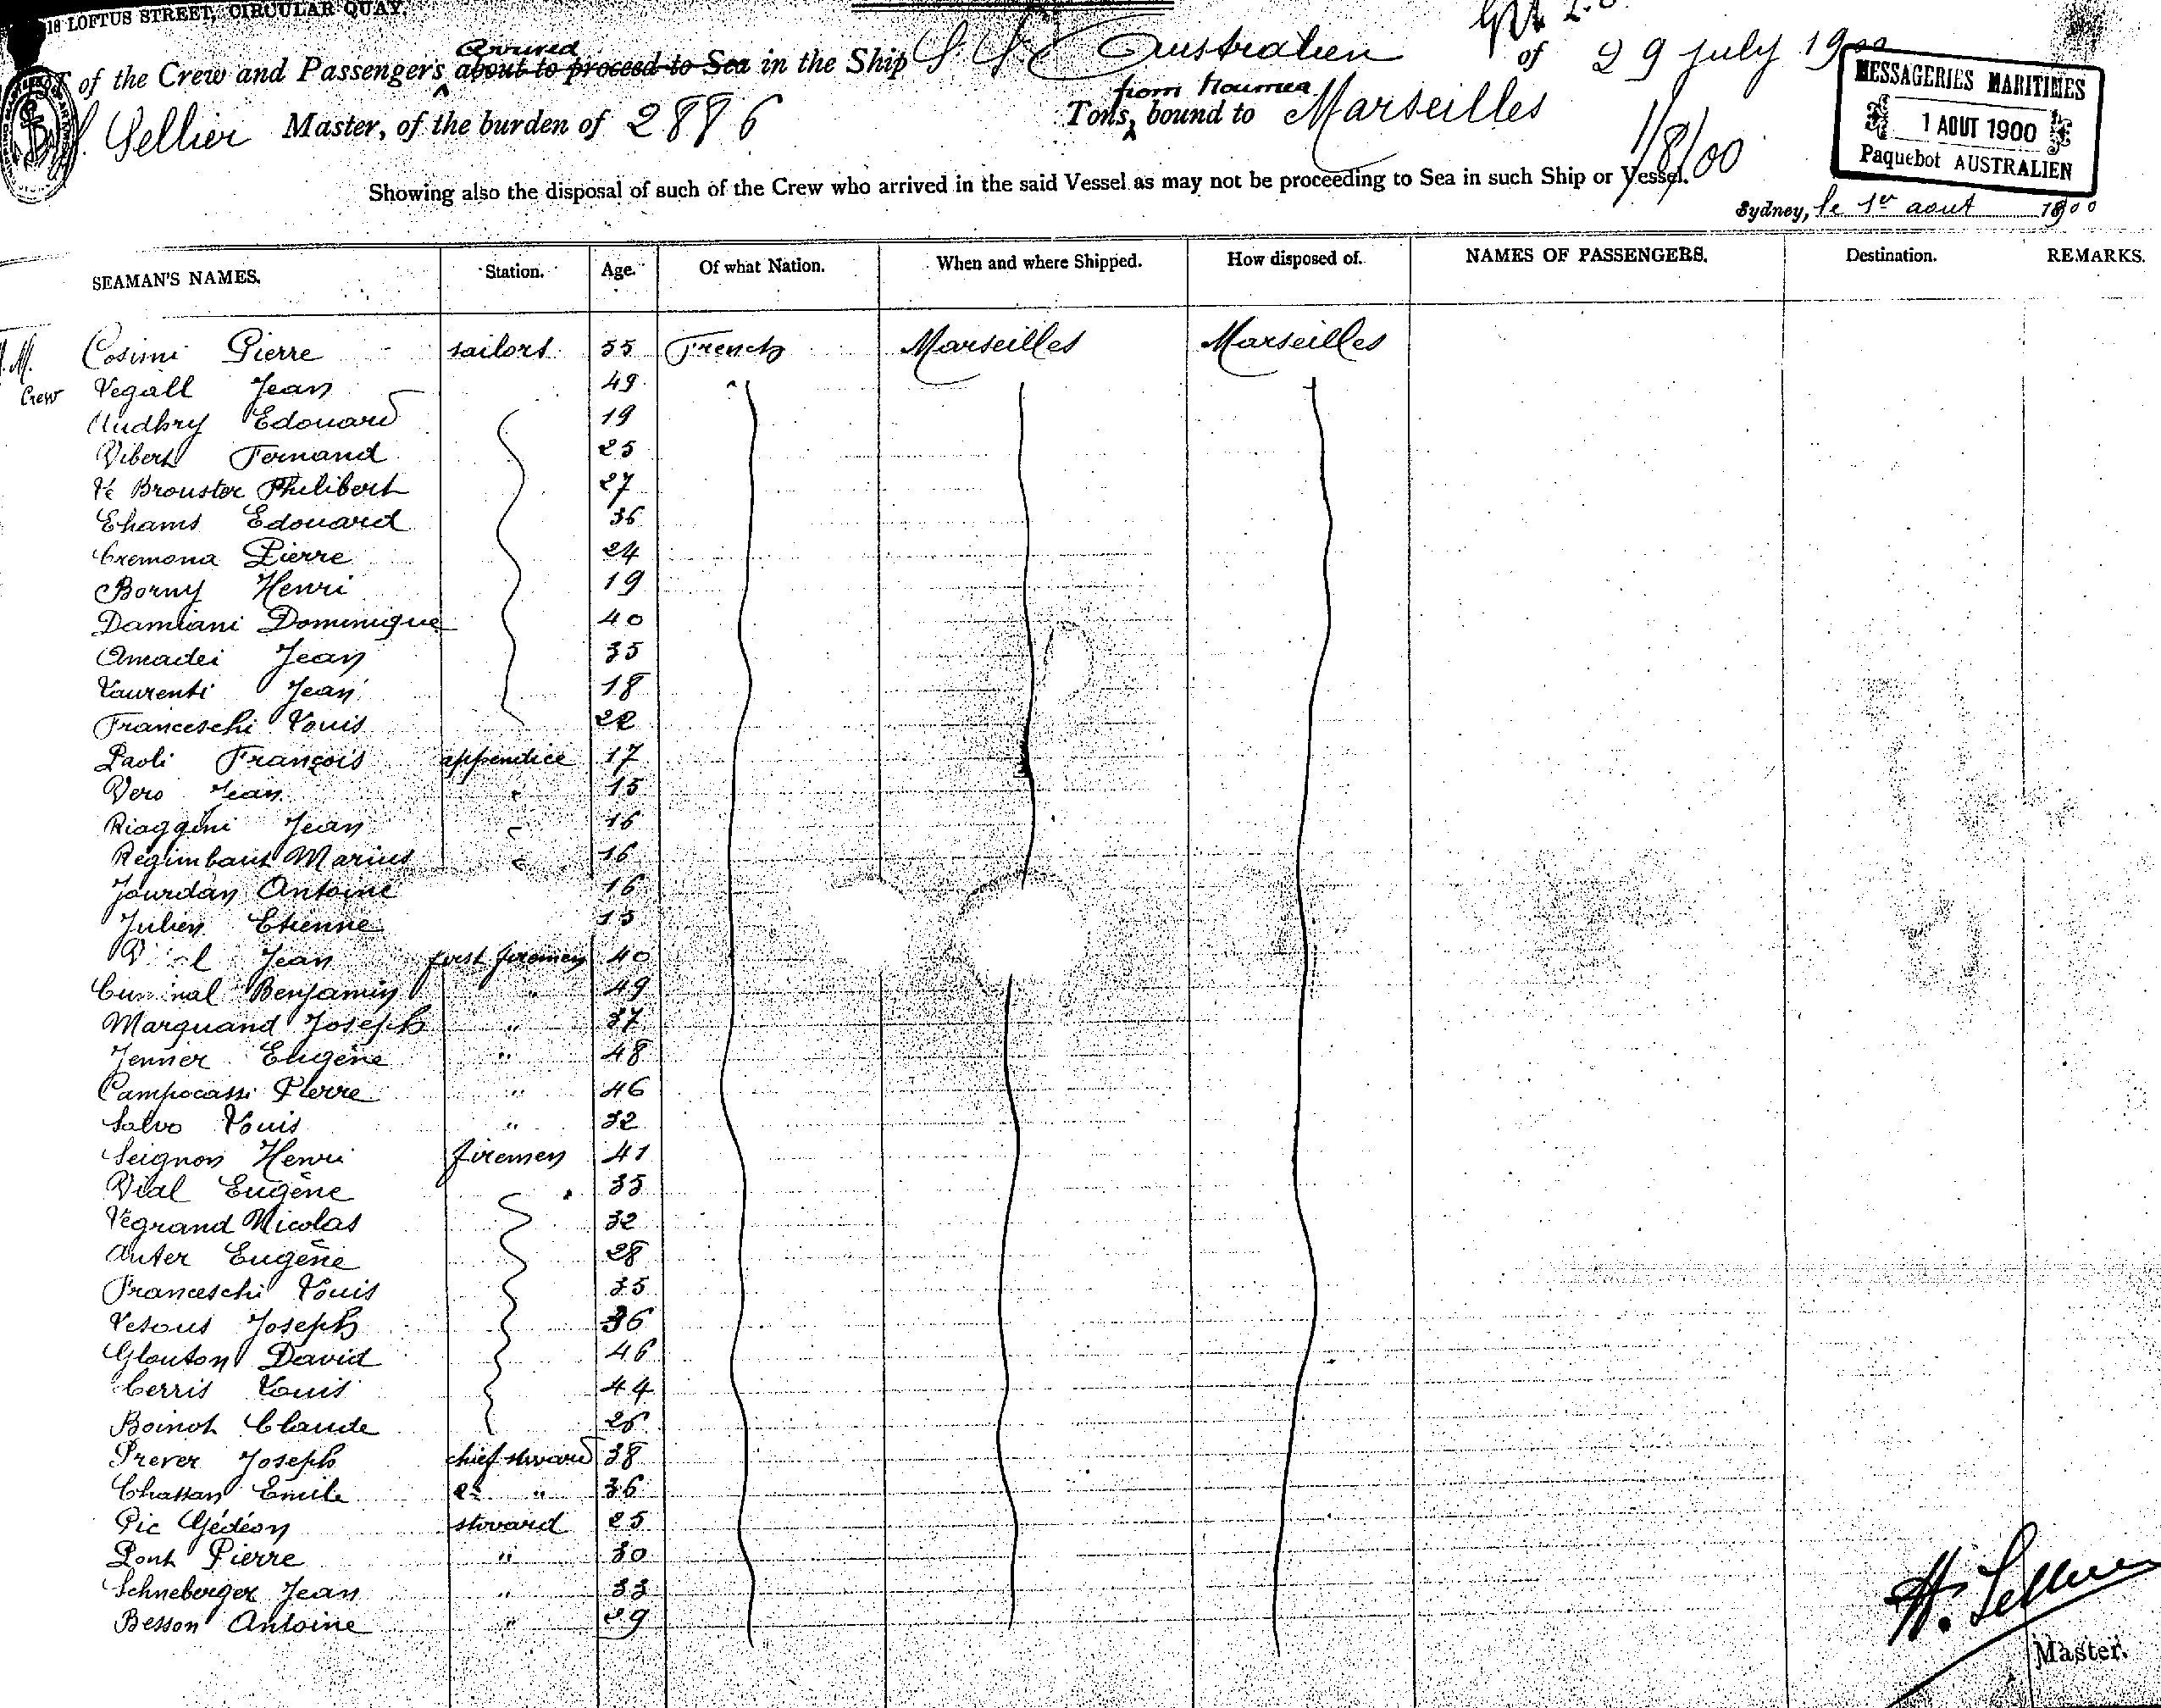 18 LOFTUS STREET, CIRCULAR QUAY.
of the Crew and Passengers about to proceed to Sea Arrived in the Ship S. S. Australien of 29 July 1900
Sellier Master, of the burden of 2886 Tons, from Noumea bound to Marseilles
1/8/00
MESSAGERIES MARITIMES
1 AOUT 1900
Paquebot AUSTRALIEN
Showing also the disposal of such of the Crew who arrived in the said Vessel as may not be proceeding to Sea in such Ship or Vessel.
Sydney, le 1er aout 1900
SEAMAN'S NAMES. Station. Age. Of what Nation. When and where Shipped. How disposed of. NAMES OF PASSENGERS. Destination. REMARKS.
M. Cosimi Pierre sailors 55 French Marseilles Marseilles
Crew Legall Jean 49
Audbry Edouard 19
Vibert Fernand 25
Le Brouster Philibert 27
Ehams Edouard 36
Cremona Pierre 24
Borny Henri 19
Damiani Dominique 40
Amadei Jean 35
Laurenti Jean 18
Franceschi Louis 22
Paoli François appendice 17
Vero Jean " 15
Riaggini Jean " 16
Regimbaut Marius " 16
Jourdan Antoine 16
Julien Etienne 15
Jean first firemen 40
Benjamin " 49
Marquand Joseph " 37
Jenner Eugène " 48
Campocassi Pierre " 46
Salvo Louis " 32
Seignon Henri firemen 41
Vial Eugène 35
Legrand Nicolas 32
Auter Eugène 28
Franceschi Louis 35
Lesous Joseph 36
Glouton David 46
Cerris Louis 44
Boinot Claude 26
Prever Joseph chief stward 38
Chassan Emile 2d " 36
Pic Gédéon stward 25
Pont Pierre " 30
Schneberger Jean " 33
Besson Antoine " 29
H. Sellier
Master.